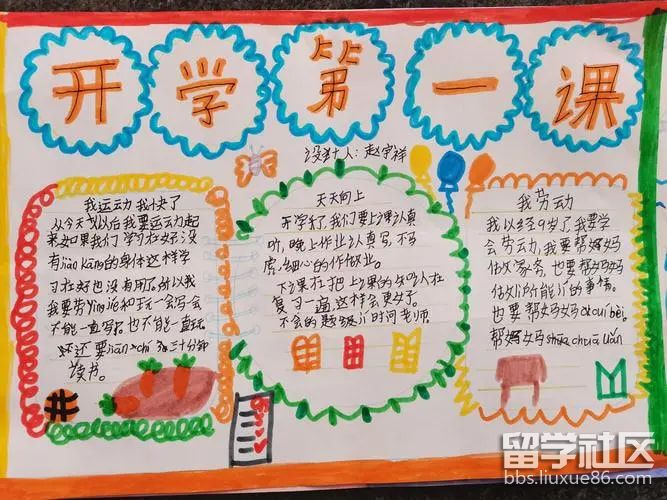 开学第一课
设计人：赵宇祥
我运动 我快了
从今天以后我要运动起
来如果我们学习在好没
有jiàn kāng的身体这样学
习在好也没有用了所以我
我要劳yìng jié和玩一会写一会
不能一直写也不能一直玩
还要jiān chí 三十分钟
读书。
天天向上
开学了，我们要上课认真
听，晚上作业认真写，不马
虎，细心的作做业。
下课在把上课的知识在
复习一遍，这样会更好了
不会的题及时问老师
我劳动
我以经9岁了，我要学
会劳动，我要帮妈妈
做家务，也要帮妈妈
做所能的事情。
也要帮妈妈dǎo bēi，
帮妈妈shōu
留学社区
bbs.liuxue86.com